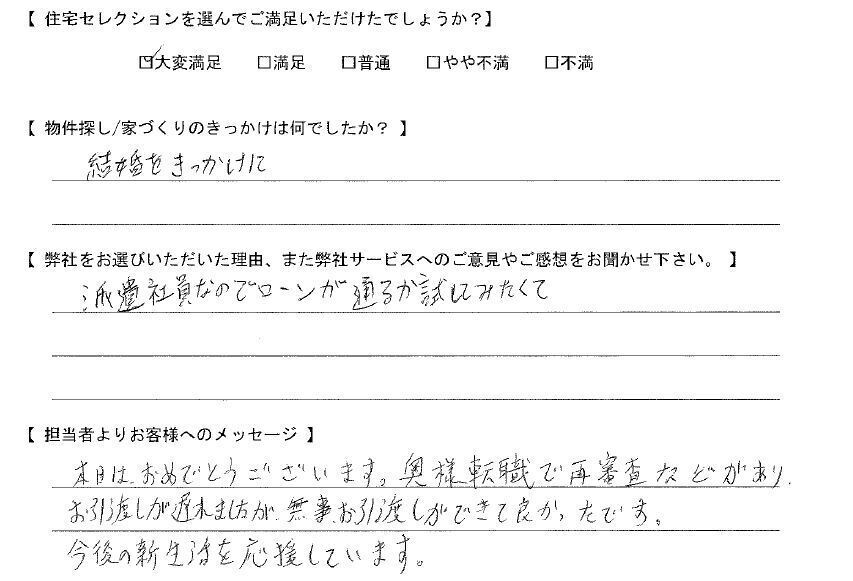 【 住宅セレクションを選んでご満足いただけたでしょうか?】
☑大変満足 □満足 □普通 □やや不満 □不満
【 物件探し/家づくりのきっかけは何でしたか? 】
結婚をきっかけに
【 弊社をお選びいただいた理由、また弊社サービスへのご意見やご感想をお聞かせ下さい。 】
派遣社員なのでローンが通るか試してみたくて
【 担当者よりお客様へのメッセージ 】
本日は、おめでとうございます。奥様転職で再審査などがあり、
お引渡しが遅れましたが、無事、お引渡しができて良かったです。
今後の新生活を応援しています。